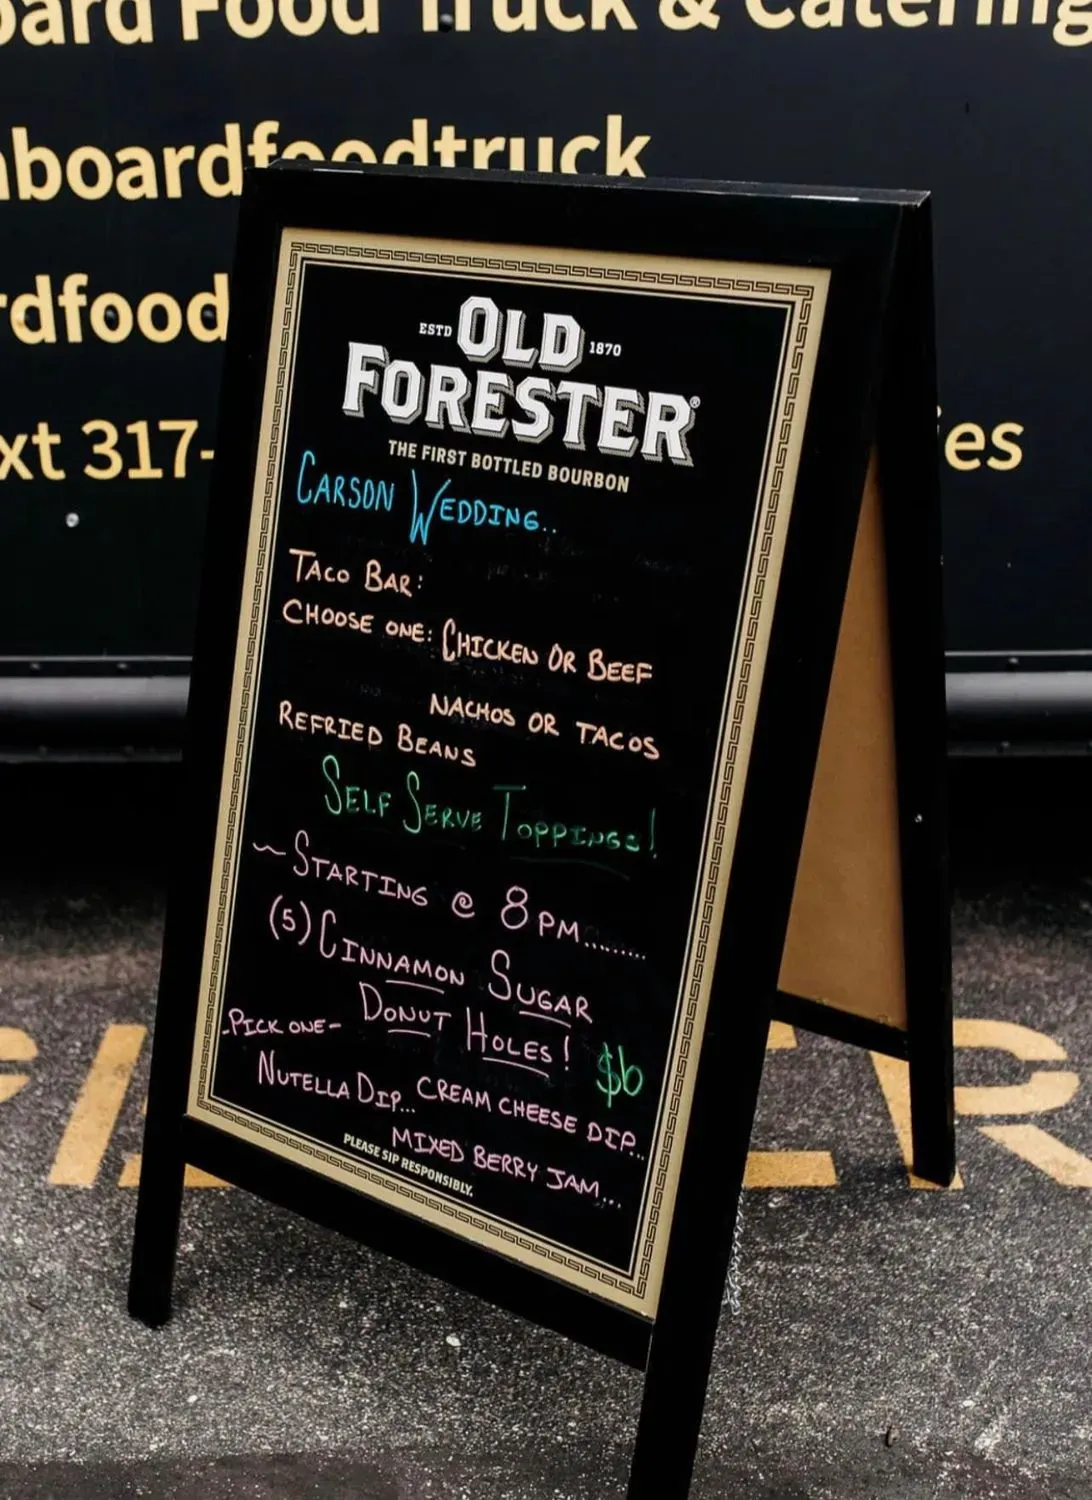 Food Truck & Catering
boardfoodtruck
rdfood
xt 317-
es
ESTD OLD 1870
FORESTER®
THE FIRST BOTTLED BOURBON
CARSON WEDDING..
TACO BAR:
CHOOSE ONE: CHICKEN OR BEEF
NACHOS OR TACOS
REFRIED BEANS
SELF SERVE TOPPINGS!
~STARTING @ 8PM.........
(5) CINNAMON SUGAR
DONUT HOLES!
-PICK ONE-
$6
NUTELLA DIP... CREAM CHEESE DIP...
MIXED BERRY JAM...
PLEASE SIP RESPONSIBLY.